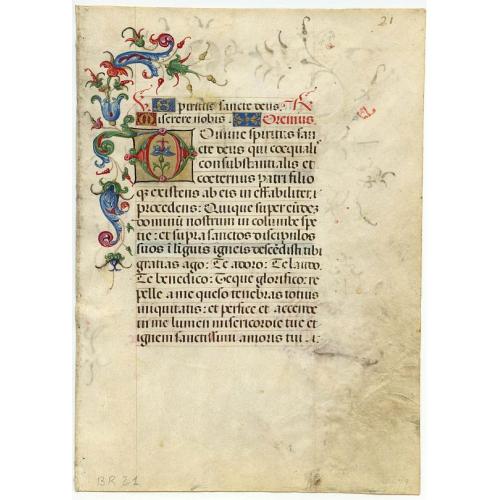 21
V. Spiritus sancte deus. R.
Miserere nobis. Oremus
Domine spiritus san
cte deus qui coequalis
consubstantialis et
coeternus patri filio
q; existens ab eis in effabiliter
procedens: Quique super eundez
dominū nostrum in columbe spe
tie: et supra sanctos discipulos
suos ī liguis igneis descēdisti tibi
gratias ago: Te adoro: Te laudo
Te benedico: Teque glorifico: re
pelle a me queso tenebras totius
iniquitatis: et perfice et accente
in me lumen misericordie tue et
ignem sanctissimi amoris tui
BR 21